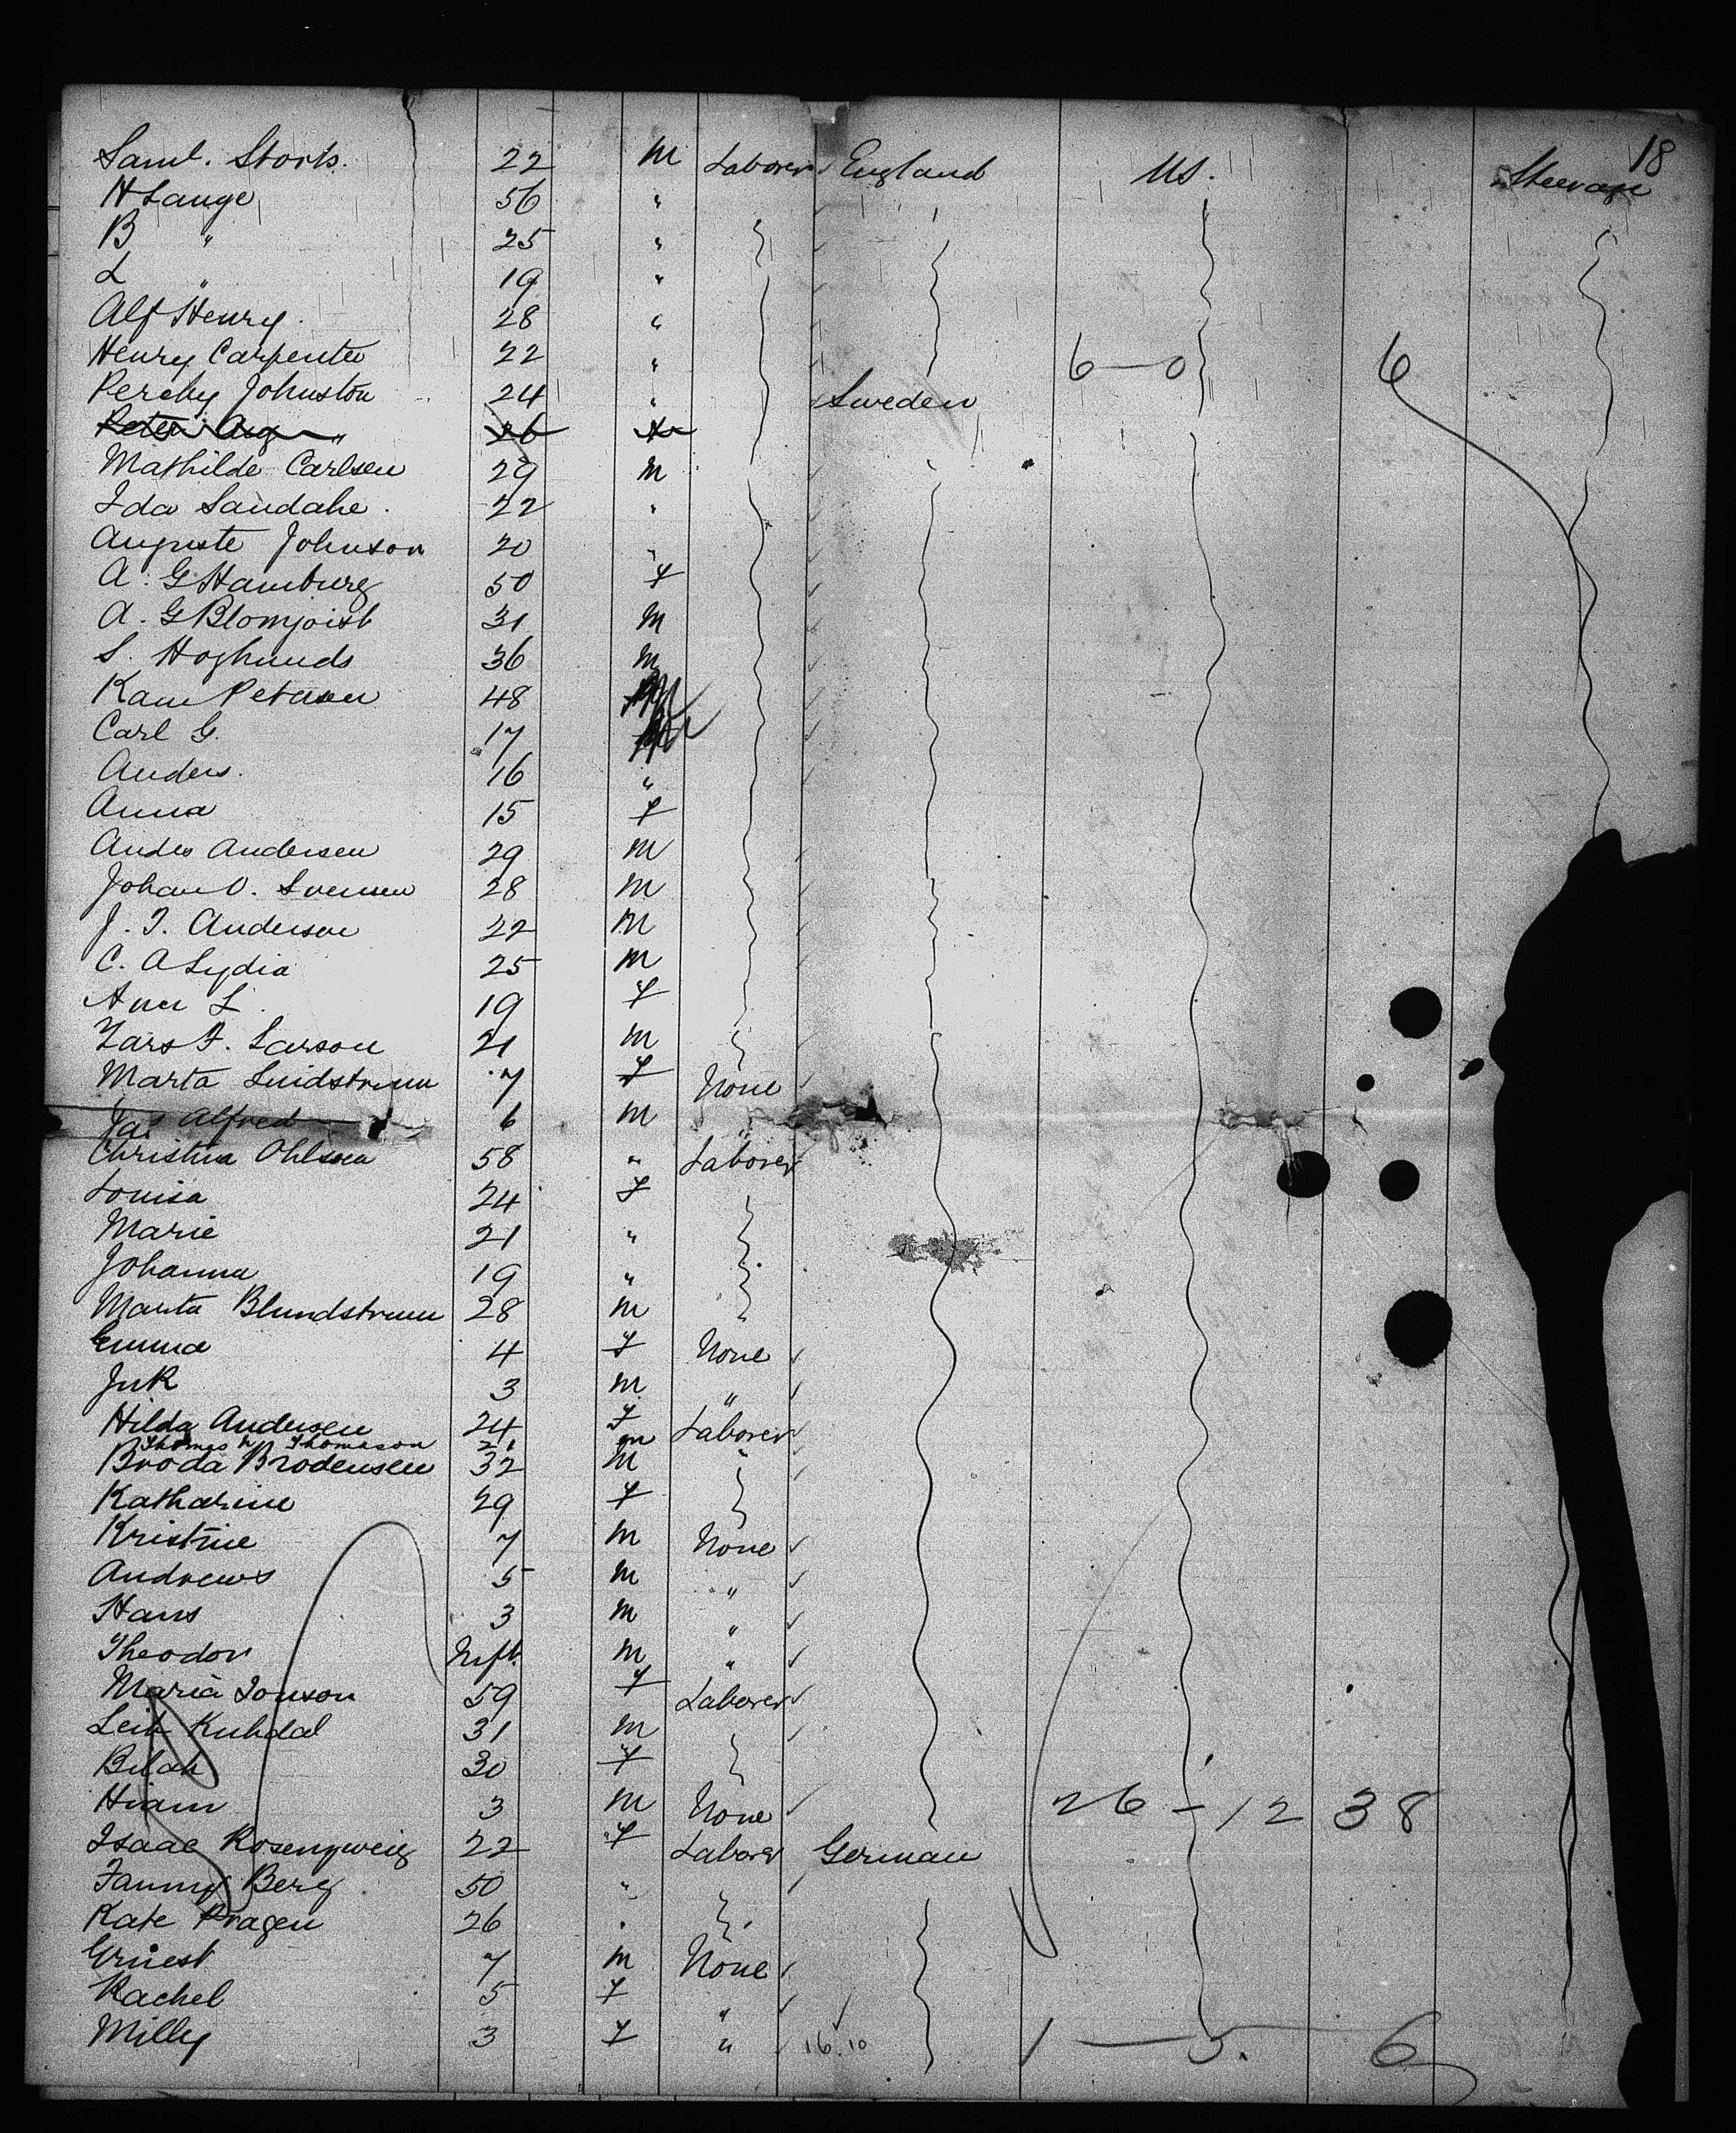 18
Saml. Storks. 22 M Laborer England US. Steerage
H Lange 56 "
B " 25 "
L " 19 "
Alf Henry 28 "
Henry Carpenter 22 " 6 — 0 6
Perchy Johnston 24 " Sweden
Peter Aug " 26
Mathilde Carlsen 29 M
Ida Sandahe 22 "
Auguste Johnson 20 "
A. G Hamburg 50 f
A. G Blomjoist 31 M
S. Hoghunds 36 M
Kam Petersen 48
Carl G. 17
Anders. 16 "
Anna 15 f
Andes Andersen 29 M
Johan O. Svensen 28 M
J. T. Anderson 22 M
C. A Lydia 25 M
Ann L. 19 f
Lars F. Larson 21 M
Marta Lindstrum 7 f None
Jas Alfred 6 M "
Christina Ohlsen 58 " Laborer
Louisa 24 f
Marie 21 "
Johanna 19 "
Marta Blundstrum 28 M
Emma 4 f None
3 M "
Hilda Andersen 24 f Laborer
Thomas N Thomason 21 m
Broda Brodensen 32 M "
Katharine 29 f
Kristine 7 M None
Andrews 5 M "
Hans 3 M "
Theodor Inft. M "
Maria Jonson 59 f Laborer
Leib Kuhdal 31 M
Bilah 30 f
Hiam 3 M None 26 - 12 38
Isaac Rosenzweig 22 f Laborer German
Fanny Berg 50 "
Kate Pragen 26 "
Ernest 7 M None
Rachel 5 f "
Milly 3 f " 16.10 1 — 5. 6